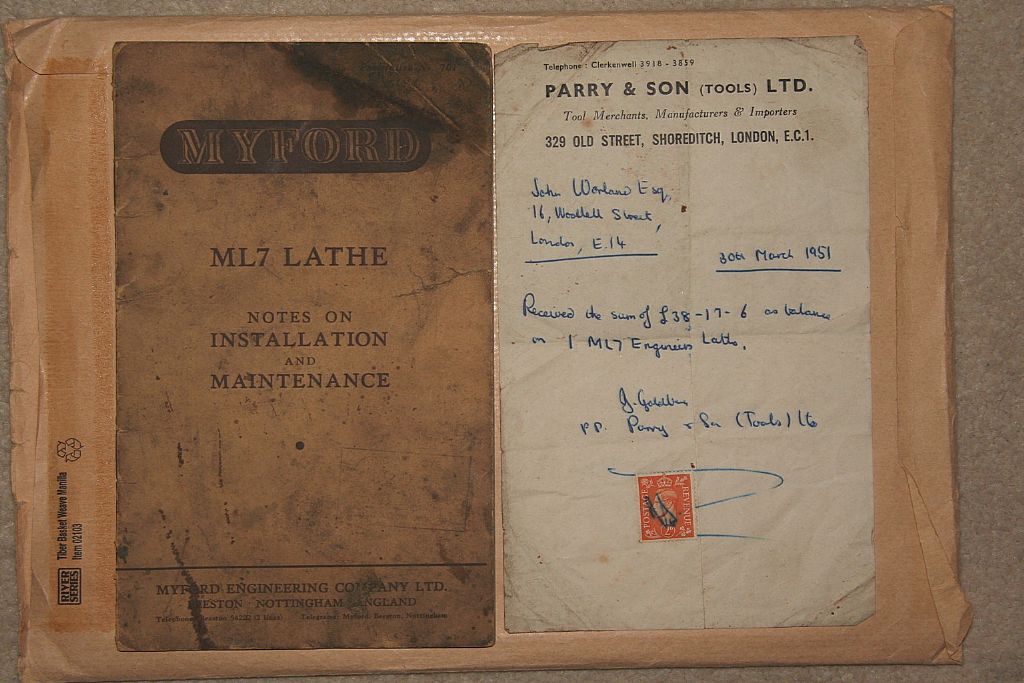 MYFORD
ML7 LATHE
NOTES ON
INSTALLATION
AND
MAINTENANCE
MYFORD ENGINEERING COMPANY LTD.
BEESTON NOTTINGHAM ENGLAND
Telephone: Beeston 54222 (2 lines) Telegrams: Myford, Beeston, Nottingham
Telephone : Clerkenwell 3918 - 3859
PARRY & SON (TOOLS) LTD.
Tool Merchants, Manufacturers & Importers
329 OLD STREET, SHOREDITCH, LONDON, E.C.1.
John Esq,
16, Street,
London, E.14
30th March 1951
Received the sum of £38-17-6 as balance
on 1 ML7 Engineers Lathe.
pp. Parry & Son (Tools) Ltd
POSTAGE REVENUE
Tiber Basket Weave Manilla
Item 02103
RIVER
SERIES